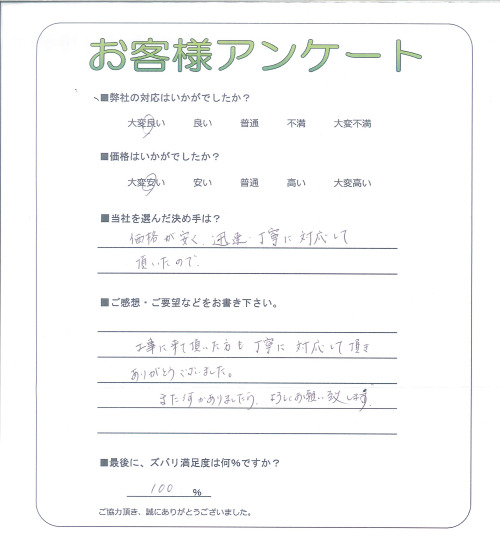 お客様アンケート
■弊社の対応はいかがでしたか？
大変良い 良い 普通 不満 大変不満
■価格はいかがでしたか？
大変安い 安い 普通 高い 大変高い
■当社を選んだ決め手は？
価格が安く、迅速・丁寧に対応して
頂いたので、
■ご感想・ご要望などをお書き下さい。
工事に来て頂いた方も丁寧に対応して頂き
ありがとうございました。
また何かありましたら、よろしくお願い致します。
■最後に、ズバリ満足度は何％ですか？
100 ％
ご協力頂き、誠にありがとうございました。